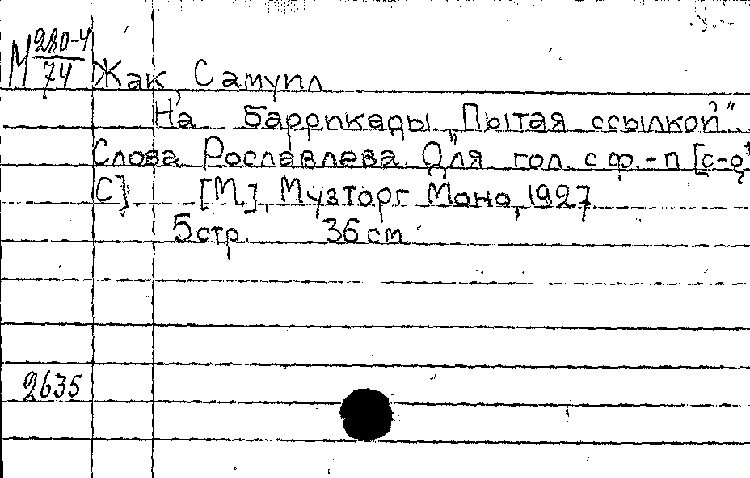 М 280-4
74
Жак, Самуил
На баррикады „Пытая ссылкой"
Слова Рославлева. Для гол. с ф.-п [c-g¹
C] [М.], Музторг Моно, 1927
5 стр. 36 cm
2635